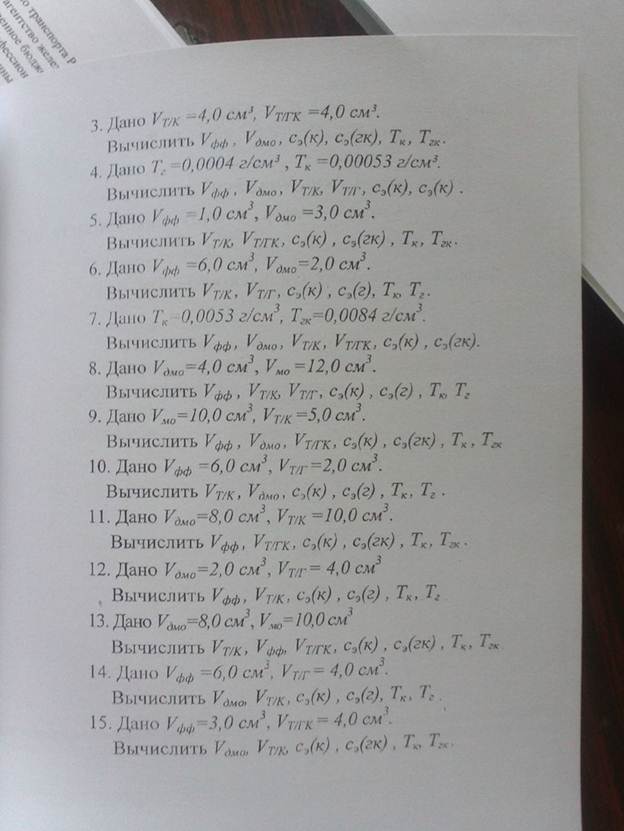 о транспорта Р
агентство желез
енное бюдже
фессион
3. Дано V_Т/К =4,0 см³, V_Т/ГК =4,0 см³.
Вычислить V_фф, V_дмо, c_э(к), c_э(гк), T_к, T_гк.
4. Дано T_г =0,0004 г/см³ , T_к =0,00053 г/см³.
Вычислить V_фф , V_дмо, V_Т/К, V_Т/Г, c_э(к), c_э(к) .
5. Дано V_фф =1,0 см³, V_дмо =3,0 см³.
Вычислить V_Т/К, V_Т/ГК, c_э(к) , c_э(гк) , T_к, T_гк.
6. Дано V_фф =6,0 см³, V_дмо=2,0 см³.
Вычислить V_Т/К, V_Т/Г, c_э(к) , c_э(г), T_к, T_г.
7. Дано T_к=0,0053 г/см³, T_гк=0,0084 г/см³.
Вычислить V_фф, V_дмо, V_Т/К, V_Т/ГК, c_э(к) , c_э(гк).
8. Дано V_дмо=4,0 см³, V_мо =12,0 см³.
Вычислить V_фф , V_Т/К, V_Т/Г, c_э(к) , c_э(г) , T_к, T_г
9. Дано V_мо=10,0 см³, V_Т/К =5,0 см³.
Вычислить V_фф , V_дмо, V_Т/ГК, c_э(к) , c_э(гк) , T_к , T_гк
10. Дано V_фф =6,0 см³, V_Т/Г=2,0 см³.
Вычислить V_Т/К , V_дмо, c_э(к) , c_э(г) , T_к, T_г .
11. Дано V_дмо=8,0 см³, V_Т/К =10,0 см³.
Вычислить V_фф, V_Т/ГК, c_э(к) , c_э(гк) , T_к, T_гк .
12. Дано V_дмо=2,0 см³, V_Т/Г= 4,0 см³
Вычислить V_фф, V_Т/К, c_э(к) , c_э(г) , T_к, T_г
13. Дано V_дмо=8,0 см³, V_мо=10,0 см³
Вычислить V_Т/К, V_фф, V_Т/ГК, c_э(к) , c_э(гк) , T_к, T_гк.
14. Дано V_фф =6,0 см³, V_Т/Г= 4,0 см³.
Вычислить V_дмо, V_Т/К, c_э(к) , c_э(г), T_к, T_г .
15. Дано V_фф=3,0 см³, V_Т/ГК= 4,0 см³.
Вычислить V_дмо, V_Т/К, c_э(к) , c_э(гк) , T_к, T_гк.